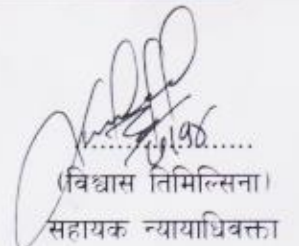 (विश्वास तिमिल्सिना)
सहायक न्यायाधिवक्ता